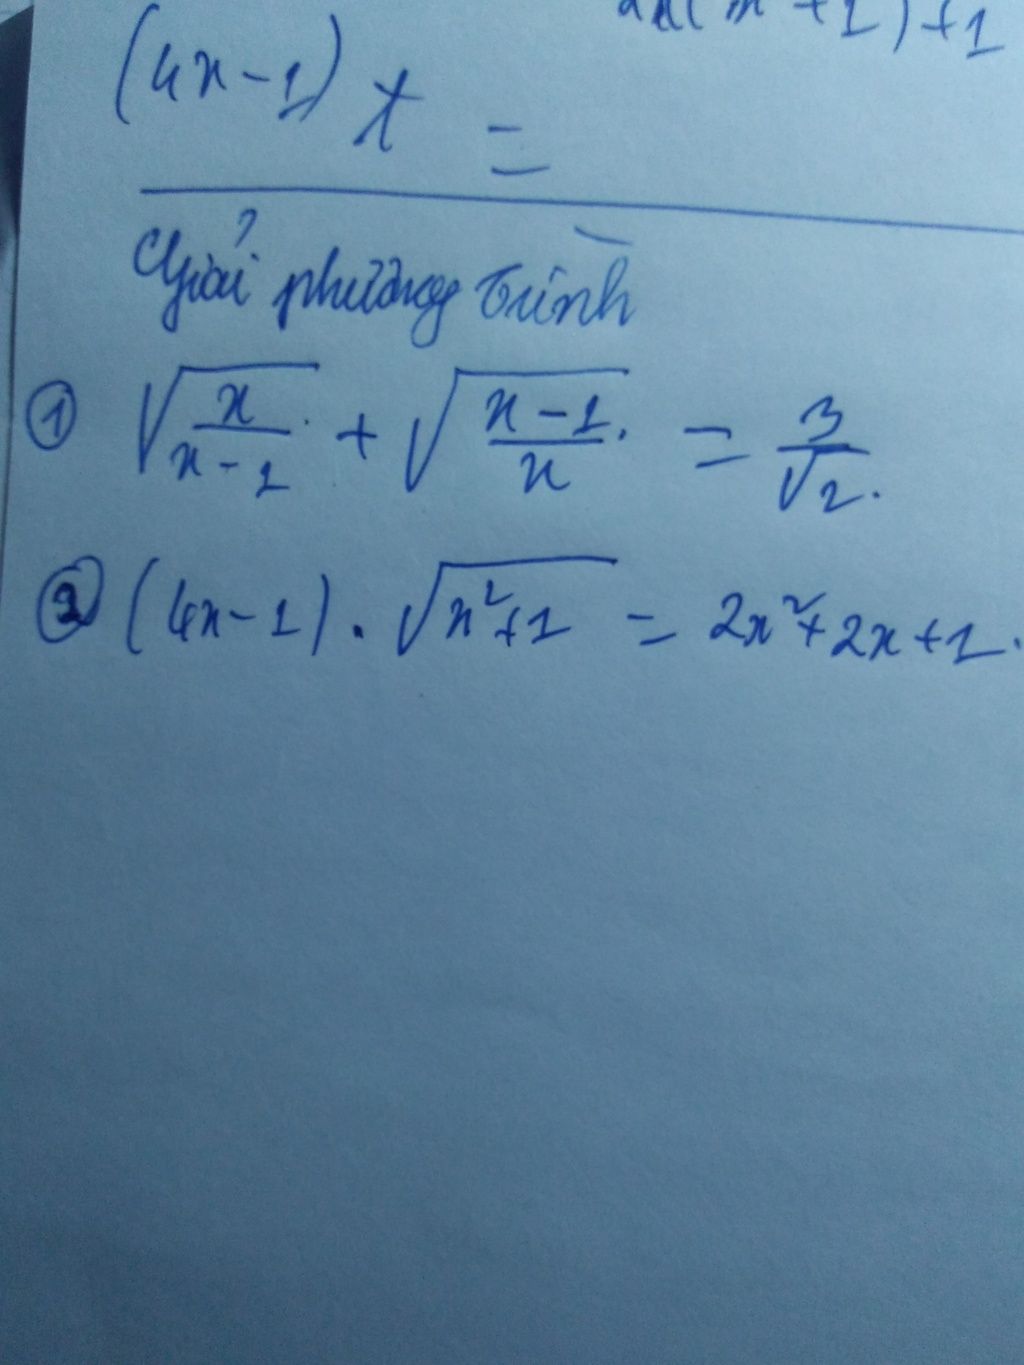 + 1) + 1
(4x - 1) t =
Giải phương trình
① √(x/(x-1)) + √((x-1)/x) = 3/√2.
② (4x - 1) . √(x²+1) = 2x² + 2x + 1.